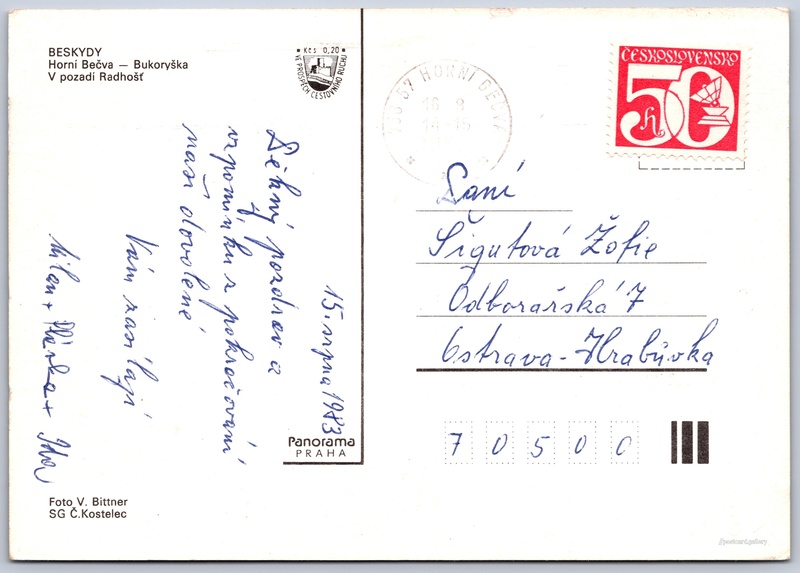 BESKYDY
Horní Bečva — Bukoryška
V pozadí Radhošť
Kčs 0,20
VE PROSPĚCH CESTOVNÍHO RUCHU
15. srpna 1983
Pěkný pozdrav a
vzpomínku z pokračování
naší dovolené
Vám zasílají
Milan + + Iva
Panorama
PRAHA
Foto V. Bittner
SG Č.Kostelec
57 HORNÍ BEČVA
16. 8.
ČESKOSLOVENSKO
50
h
Paní
Šigutová Žofie
Odborářská 7
Ostrava - Hrabůvka
7 0 5 0 0